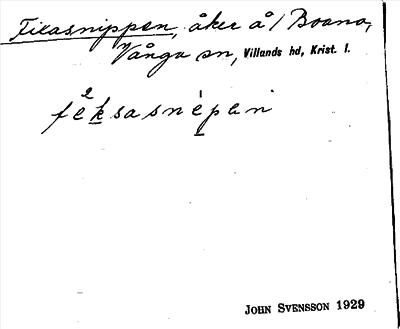 Fixasnippen, åker å / Boana,
Vånga sn, Villands hd, Krist. l.
feksasnepen
JOHN SVENSSON 1929